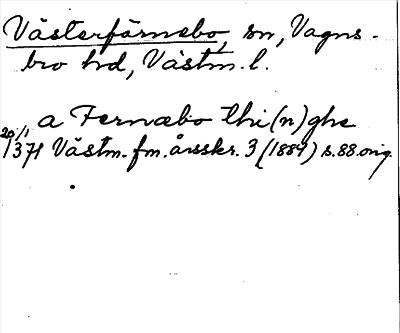 Västerfärnebo, sn, Vagns-
bro hd, Västm. l.
a Fernæbo thi(n)ghe
20/1
1371 Västm. fm. årsskr. 3 (1884) s. 88. orig.